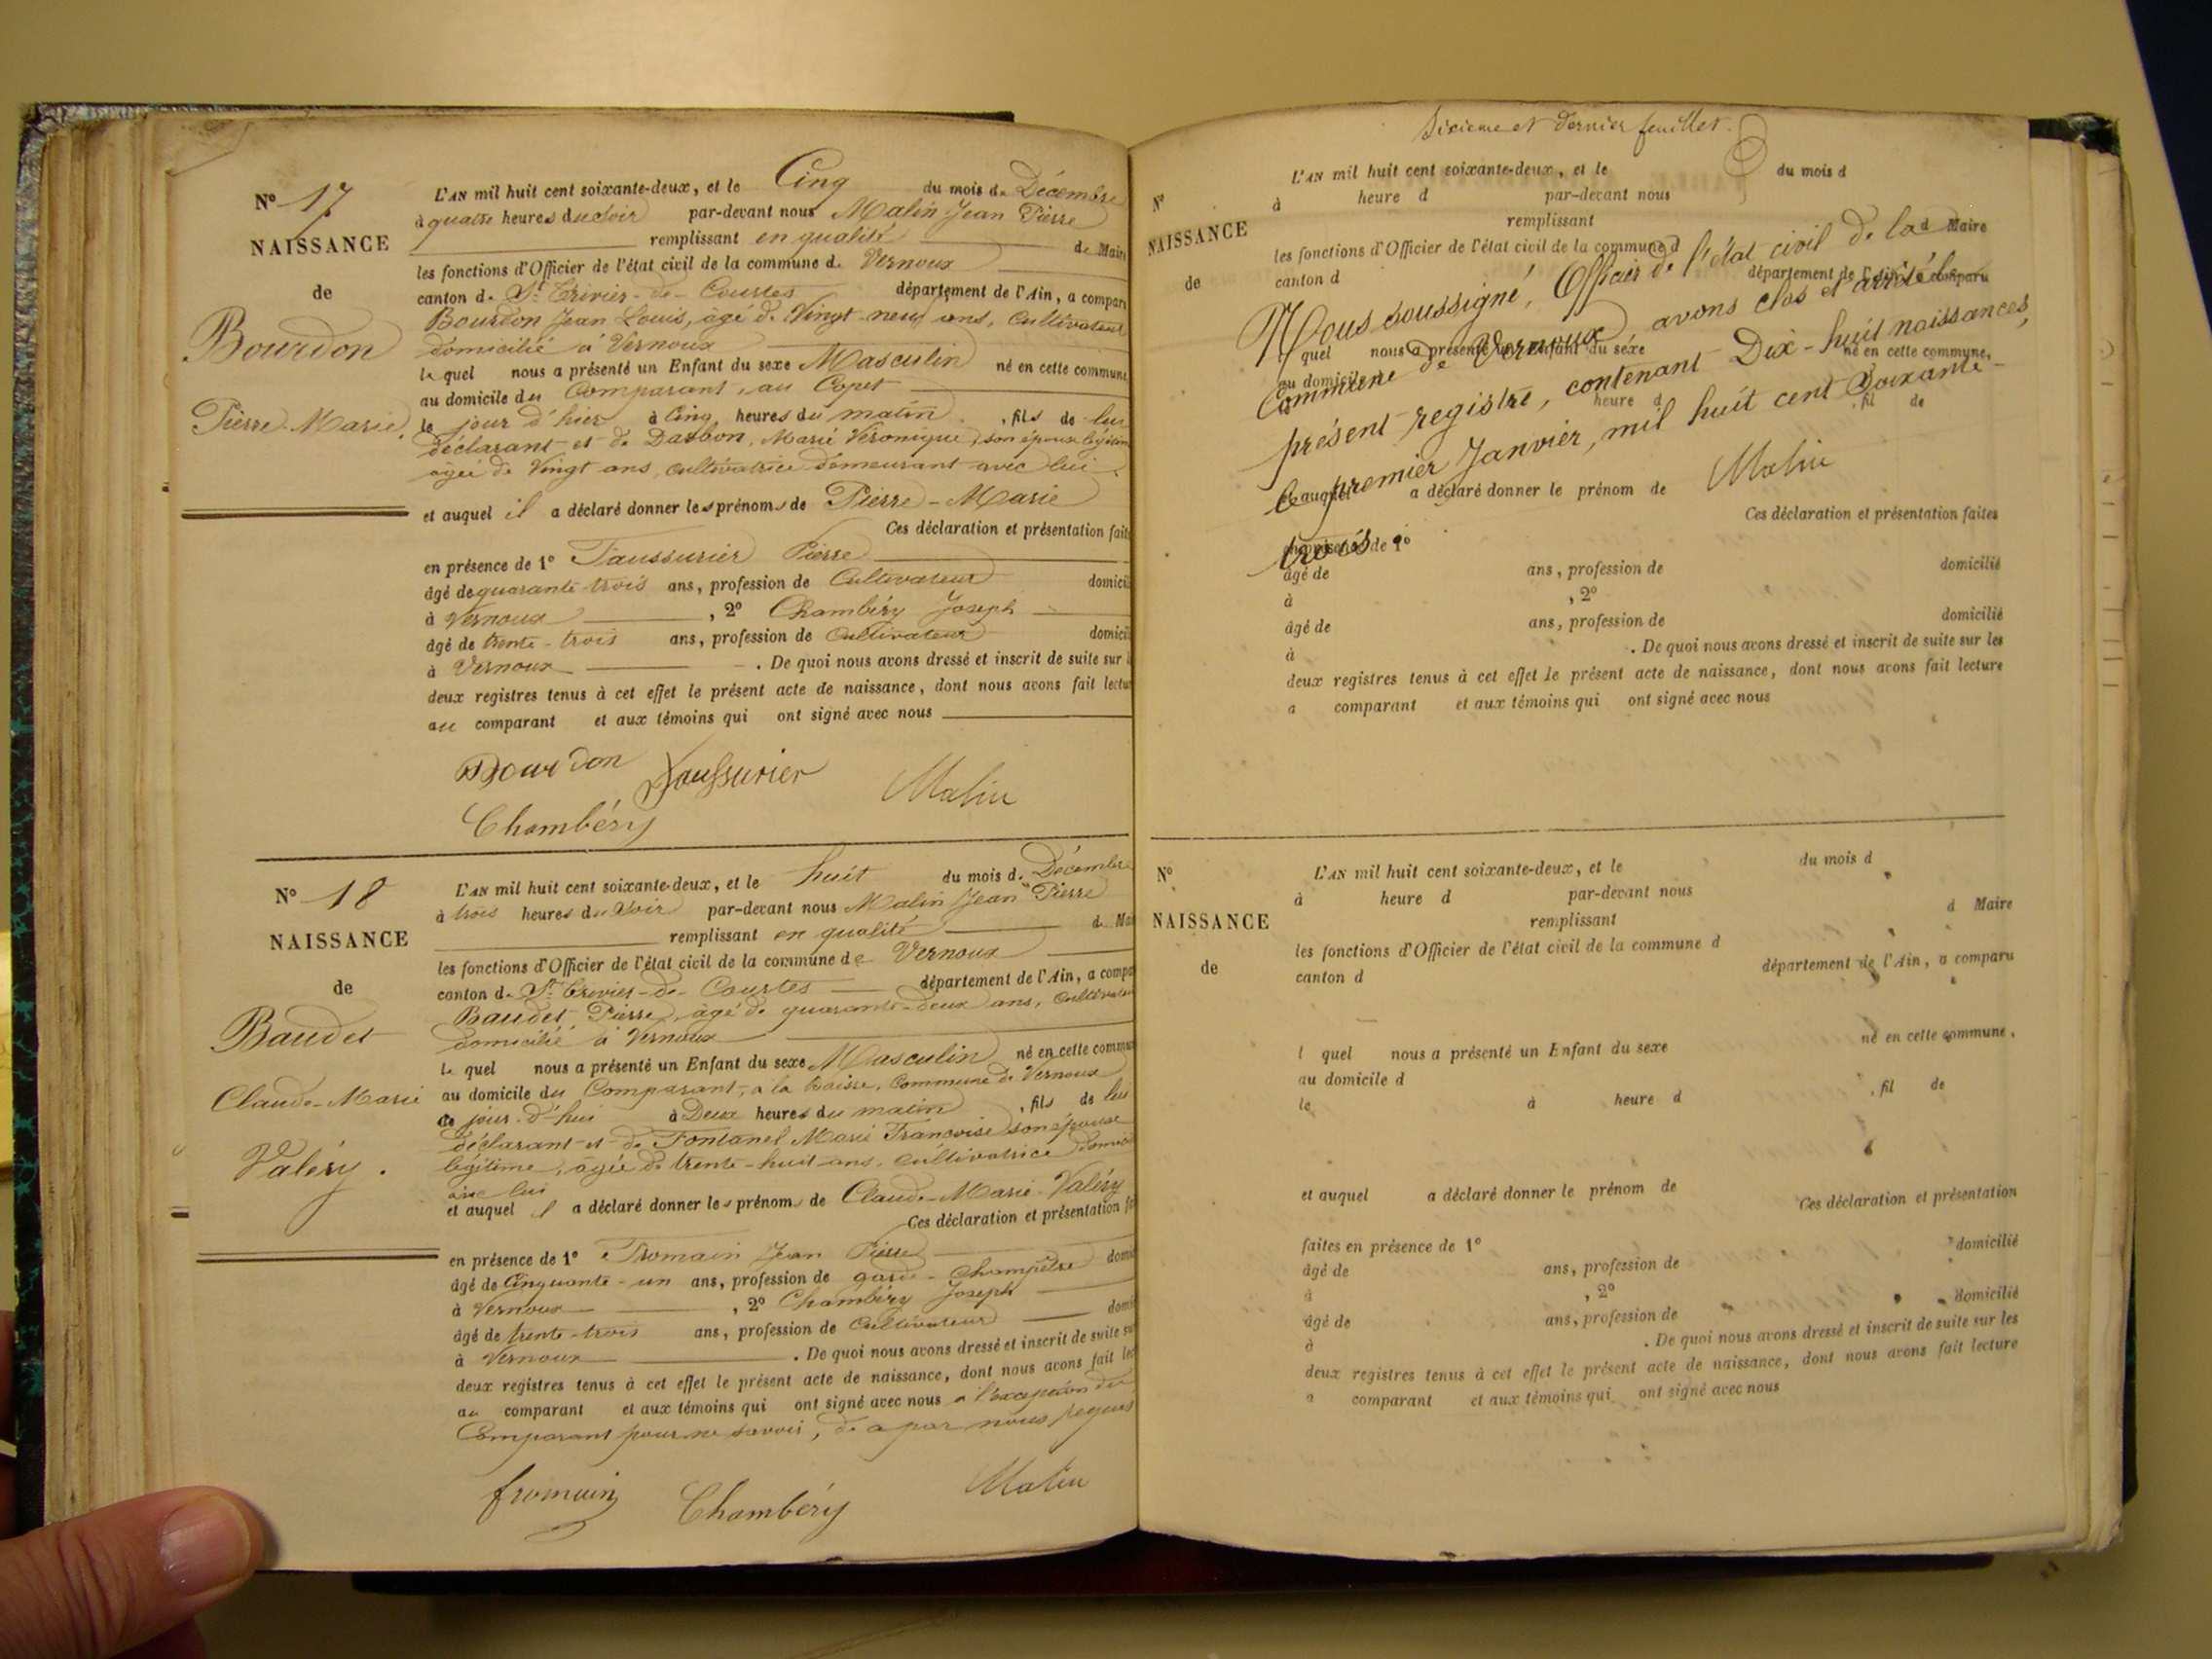 N° 17
NAISSANCE
de
Bourdon
Pierre-Marie.
L'AN mil huit cent soixante-deux, et le Cinq du mois de Décembre
à quatre heures du soir par-devant nous Malin Jean Pierre
remplissant en qualité de Maire
les fonctions d'Officier de l'état civil de la commune de Vernoux
canton de St Trivier-de-Courtes département de l'Ain, a compar
Bourdon Jean Louis, âgé de Vingt-neuf ans, Cultivateur
domicilié à Vernoux
le quel nous a présenté un Enfant du sexe Masculin né en cette commune
au domicile du Comparant, au Copet
le jour d'hier à Cinq heures du matin, fils de lui
déclarant et de Darbon, Marie Véronique, son épouse légitime
âgée de Vingt ans, cultivatrice demeurant avec lui
et auquel il a déclaré donner les prénoms de Pierre-Marie
Ces déclaration et présentation fait
en présence de 1° Faussurier Pierre
âgé de quarante-trois ans, profession de Cultivateur domicil
à Vernoux, 2° Chambéry Joseph
âgé de trente-trois ans, profession de Cultivateur domicil
à Vernoux. De quoi nous avons dressé et inscrit de suite sur l
deux registres tenus à cet effet le présent acte de naissance, dont nous avons fait lectur
au comparant et aux témoins qui ont signé avec nous
Bourdon Faussurier Malin
Chambéry
N° 18
NAISSANCE
de
Baudet
Claude-Marie
Valéry.
L'AN mil huit cent soixante-deux, et le huit du mois de Décembre
à trois heures du soir par-devant nous Malin Jean Pierre
remplissant en qualité de Mai
les fonctions d'Officier de l'état civil de la commune de Vernoux
canton de St Trivier-de-Courtes département de l'Ain, a compa
Baudet Pierre, âgé de quarante-deux ans, Cultivateur
domicilié à Vernoux
le quel nous a présenté un Enfant du sexe Masculin né en cette commun
au domicile du Comparant, à la Baisse, Commune de Vernoux
ce jour d'hui à Deux heures du matin, fils de lui
déclarant et de Fontanel Marie Francoise son épouse
légitime, âgée de trente-huit ans, cultivatrice domicil
avec lui
et auquel il a déclaré donner les prénoms de Claude-Marie-Valéry
Ces déclaration et présentation fai
en présence de 1° Fromain Jean Pierre
âgé de Cinquante-un ans, profession de garde-Champêtre domic
à Vernoux, 2° Chambéry Joseph
âgé de trente-trois ans, profession de Cultivateur domic
à Vernoux. De quoi nous avons dressé et inscrit de suite sur
deux registres tenus à cet effet le présent acte de naissance, dont nous avons fait lec
au comparant et aux témoins qui ont signé avec nous à l'exception du
Comparant pour ne savoir, de a par nous requis
fromain Chambéry Malin
Sixieme et dernier feuillet.
N°
NAISSANCE
de
L'AN mil huit cent soixante-deux, et le du mois d
à heure d par-devant nous
remplissant d Maire
les fonctions d'Officier de l'état civil de la commune d
canton d département de l'Ain, a comparu
Nous soussigné, Officier de l'état civil de la
Commune de Vernoux, avons clos et arrêté le
présent registre, contenant Dix-huit naissances,
le premier Janvier, mil huit cent Soixante-
trois.
Malin
l quel nous a présenté un Enfant du sexe né en cette commune,
au domicile d
heure d, fil de
et auquel a déclaré donner le prénom de
Ces déclaration et présentation faites
en présence de 1°
âgé de ans, profession de domicilié
à, 2°
âgé de ans, profession de domicilié
à. De quoi nous avons dressé et inscrit de suite sur les
deux registres tenus à cet effet le présent acte de naissance, dont nous avons fait lecture
a comparant et aux témoins qui ont signé avec nous
N°
NAISSANCE
de
L'AN mil huit cent soixante-deux, et le du mois d
à heure d par-devant nous
remplissant d Maire
les fonctions d'Officier de l'état civil de la commune d
canton d département de l'Ain, a comparu
l quel nous a présenté un Enfant du sexe né en cette commune,
au domicile d
le à heure d, fil de
et auquel a déclaré donner le prénom de
Ces déclaration et présentation
faites en présence de 1° domicilié
âgé de ans, profession de
à, 2° domicilié
âgé de ans, profession de
à. De quoi nous avons dressé et inscrit de suite sur les
deux registres tenus à cet effet le présent acte de naissance, dont nous avons fait lecture
a comparant et aux témoins qui ont signé avec nous